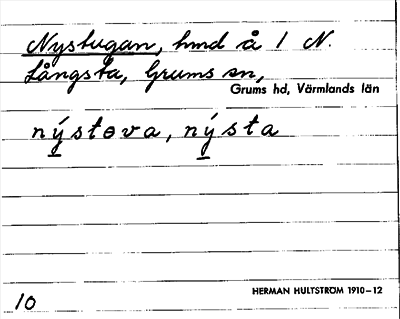 Nystugan, hmd å 1 N.
Långsta, Grums sn,
Grums hd, Värmlands län
nýstova, nýsta
HERMAN HULTSTRÖM 1910–12
10